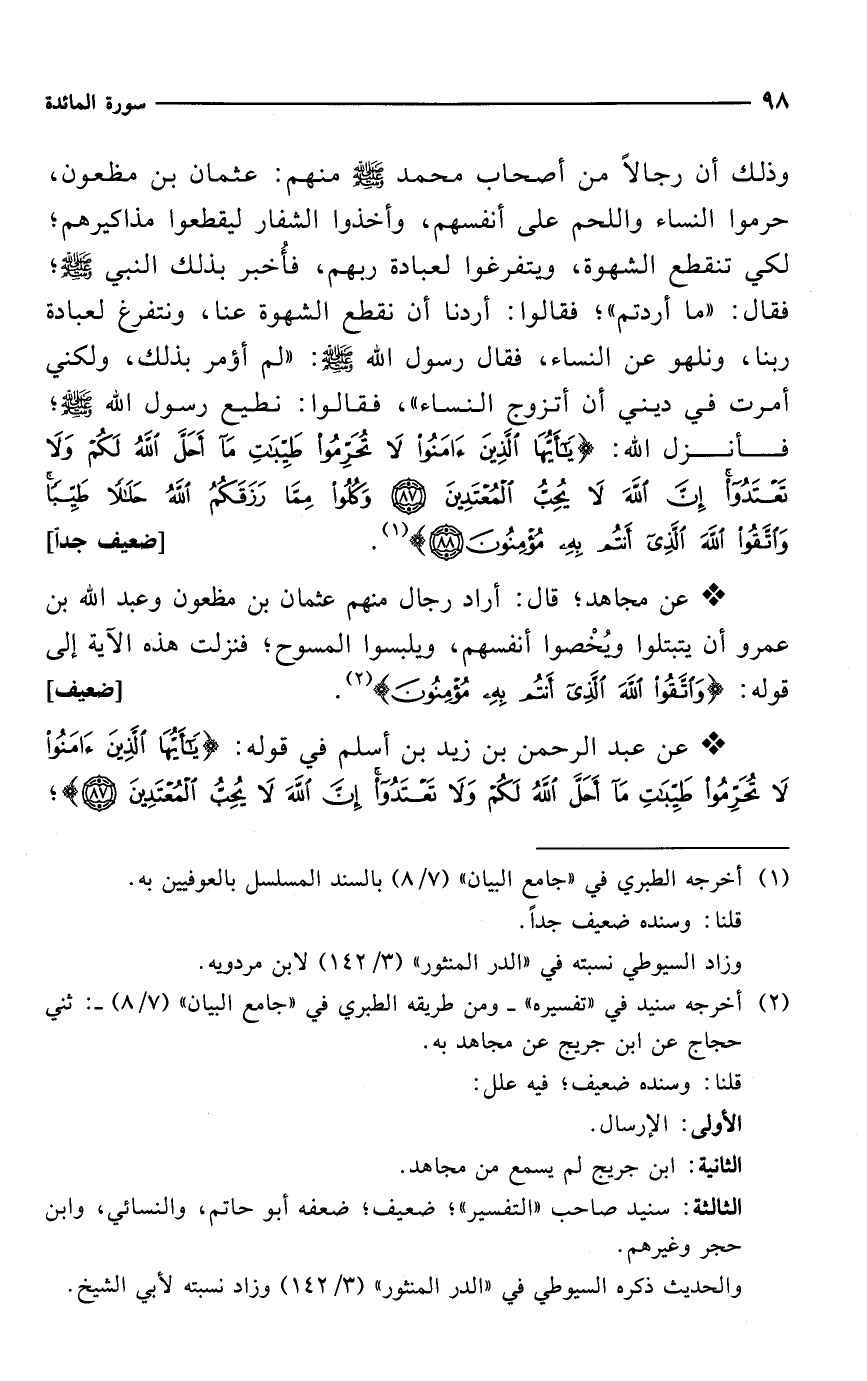 ٩٨ سورة المائدة
وذلك أن رجالاً من أصحاب محمد ﷺ منهم: عثمان بن مظعون،
حرموا النساء واللحم على أنفسهم، وأخذوا الشفار ليقطعوا مذاكيرهم؛
لكي تنقطع الشهوة، ويتفرغوا لعبادة ربهم، فأُخبر بذلك النبي ﷺ؛
فقال: «ما أردتم»؛ فقالوا: أردنا أن نقطع الشهوة عنا، ونتفرغ لعبادة
ربنا، ونلهو عن النساء، فقال رسول الله ﷺ: «لم أؤمر بذلك، ولكني
أمرت في ديني أن أتزوج النساء»، فقالوا: نطيع رسول الله ﷺ؛
فـأنـزل الله: ﴿يَٰٓأَيُّهَا ٱلَّذِينَ ءَامَنُوا۟ لَا تُحَرِّمُوا۟ طَيِّبَٰتِ مَآ أَحَلَّ ٱللَّهُ لَكُمْ وَلَا
تَعْتَدُوٓا۟ۚ إِنَّ ٱللَّهَ لَا يُحِبُّ ٱلْمُعْتَدِينَ ۝٨٧ وَكُلُوا۟ مِمَّا رَزَقَكُمُ ٱللَّهُ حَلَٰلًا طَيِّبًاۚ
وَٱتَّقُوا۟ ٱللَّهَ ٱلَّذِىٓ أَنتُم بِهِۦ مُؤْمِنُونَ ۝٨٨﴾(١). [ضعيف جداً]
❖ عن مجاهد؛ قال: أراد رجال منهم عثمان بن مظعون وعبد الله بن
عمرو أن يتبتلوا ويُخْصوا أنفسهم، ويلبسوا المسوح؛ فنزلت هذه الآية إلى
قوله: ﴿وَٱتَّقُوا۟ ٱللَّهَ ٱلَّذِىٓ أَنتُم بِهِۦ مُؤْمِنُونَ﴾(٢). [ضعيف]
❖ عن عبد الرحمن بن زيد بن أسلم في قوله: ﴿يَٰٓأَيُّهَا ٱلَّذِينَ ءَامَنُوا۟
لَا تُحَرِّمُوا۟ طَيِّبَٰتِ مَآ أَحَلَّ ٱللَّهُ لَكُمْ وَلَا تَعْتَدُوٓا۟ۚ إِنَّ ٱللَّهَ لَا يُحِبُّ ٱلْمُعْتَدِينَ ۝٨٧﴾؛
(١) أخرجه الطبري في «جامع البيان» (٧/ ٨) بالسند المسلسل بالعوفيين به.
قلنا: وسنده ضعيف جداً.
وزاد السيوطي نسبته في «الدر المنثور» (٣/ ١٤٢) لابن مردويه.
(٢) أخرجه سنيد في «تفسيره» ـ ومن طريقه الطبري في «جامع البيان» (٧/ ٨) ـ: ثني
حجاج عن ابن جريج عن مجاهد به.
قلنا: وسنده ضعيف؛ فيه علل:
الأولى: الإرسال.
الثانية: ابن جريج لم يسمع من مجاهد.
الثالثة: سنيد صاحب «التفسير»؛ ضعيف؛ ضعفه أبو حاتم، والنسائي، وابن
حجر وغيرهم.
والحديث ذكره السيوطي في «الدر المنثور» (٣/ ١٤٢) وزاد نسبته لأبي الشيخ.